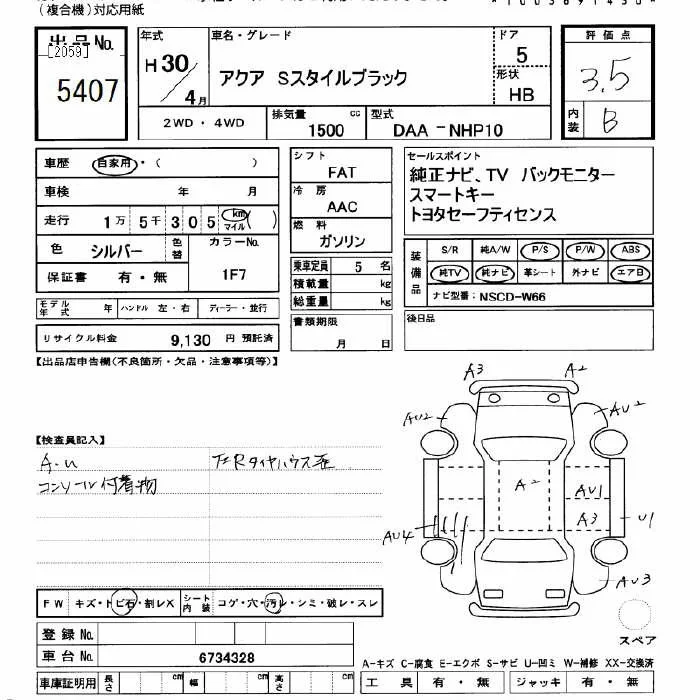 (複合機)対応用紙
出品No.
[2059]
5407
年式
H 30/4月
車名・グレード
アクア Sスタイルブラック
ドア
5
形状
HB
評価点
3.5
内装
B
2WD・4WD
排気量 1500 cc
型式 DAA-NHP10
車歴 自家用・( )
車検 年 月
走行 1万 5千 3 0 5 km マイル ( )
色 シルバー 色替 カラーNo.
保証書 有・無 1F7
モデル年式 年 ハンドル 左・右 ディーラー・並行
リサイクル料金 9,130 円 預託済
シフト
FAT
冷房
AAC
燃料
ガソリン
乗車定員 5 名
積載量 kg
総重量 kg
書類期限
月 日
セールスポイント
純正ナビ、TV バックモニター
スマートキー
トヨタセーフティセンス
装備品
S/R 純A/W P/S P/W ABS
純TV 純ナビ 革シート 外ナビ エアB
ナビ型番: NSCD-W66
後日品
【出品店申告欄(不良箇所・欠品・注意事項等)】
【検査員記入】
A・U
コンソール付着物
A3 A2
AU2 AU2
A2
AU1
A3 U1
AU4
AU3
スペア
FW キズ・トビ石・割レX シート内装 コゲ・穴・汚レ・シミ・破レ・スレ
登録No.
車台No. 6734328
車庫証明用 長さ cm 幅 cm 高さ cm
A-キズ C-腐食 E-エクボ S-サビ U-凹ミ W-補修 XX-交換済
工具 有・無 ジャッキ 有・無